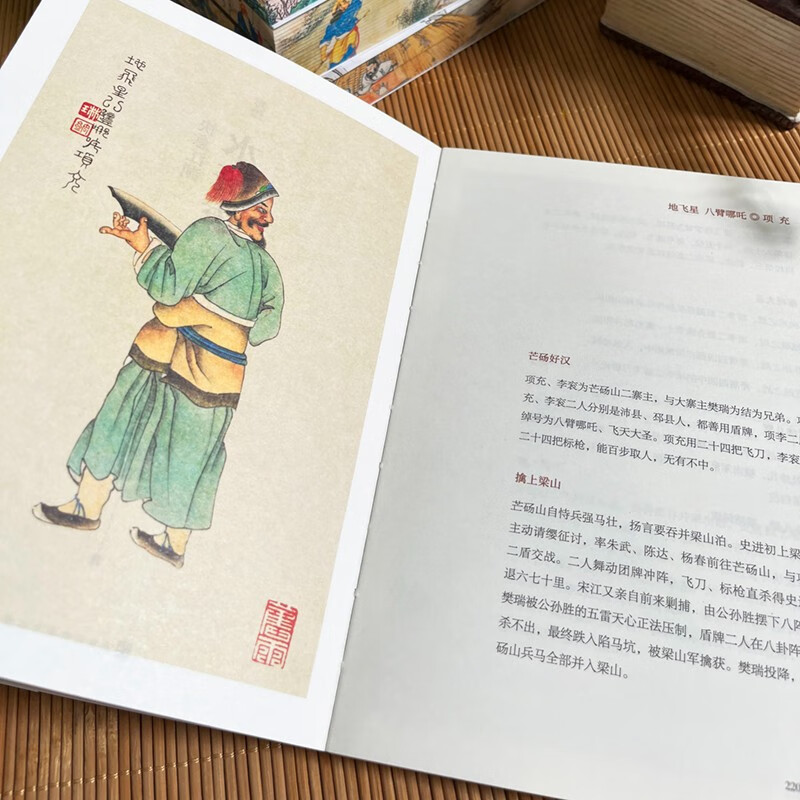 地飛星八臂哪吒項充
地飞星 八臂哪吒 项 充
芒砀好汉
项充、李衮为芒砀山二寨主，与大寨主樊瑞为结为兄弟。项
充、李衮二人分别是沛县、邳县人，都善用盾牌，项李二
绰号为八臂哪吒、飞天大圣。项充用二十四把飞刀，李衮
二十四把标枪，能百步取人，无有不中。
擒上梁山
芒砀山自恃兵强马壮，扬言要吞并梁山泊。史进初上梁
主动请缨征讨，率朱武、陈达、杨春前往芒砀山，与项
二盾交战。二人舞动团牌冲阵，飞刀、标枪直杀得史进
退六七十里。宋江又亲自前来剿捕，由公孙胜摆下八阵
樊瑞被公孙胜的五雷天心正法压制，盾牌二人在八卦阵
杀不出，最终跌入陷马坑，被梁山军擒获。樊瑞投降，
砀山兵马全部并入梁山。
220